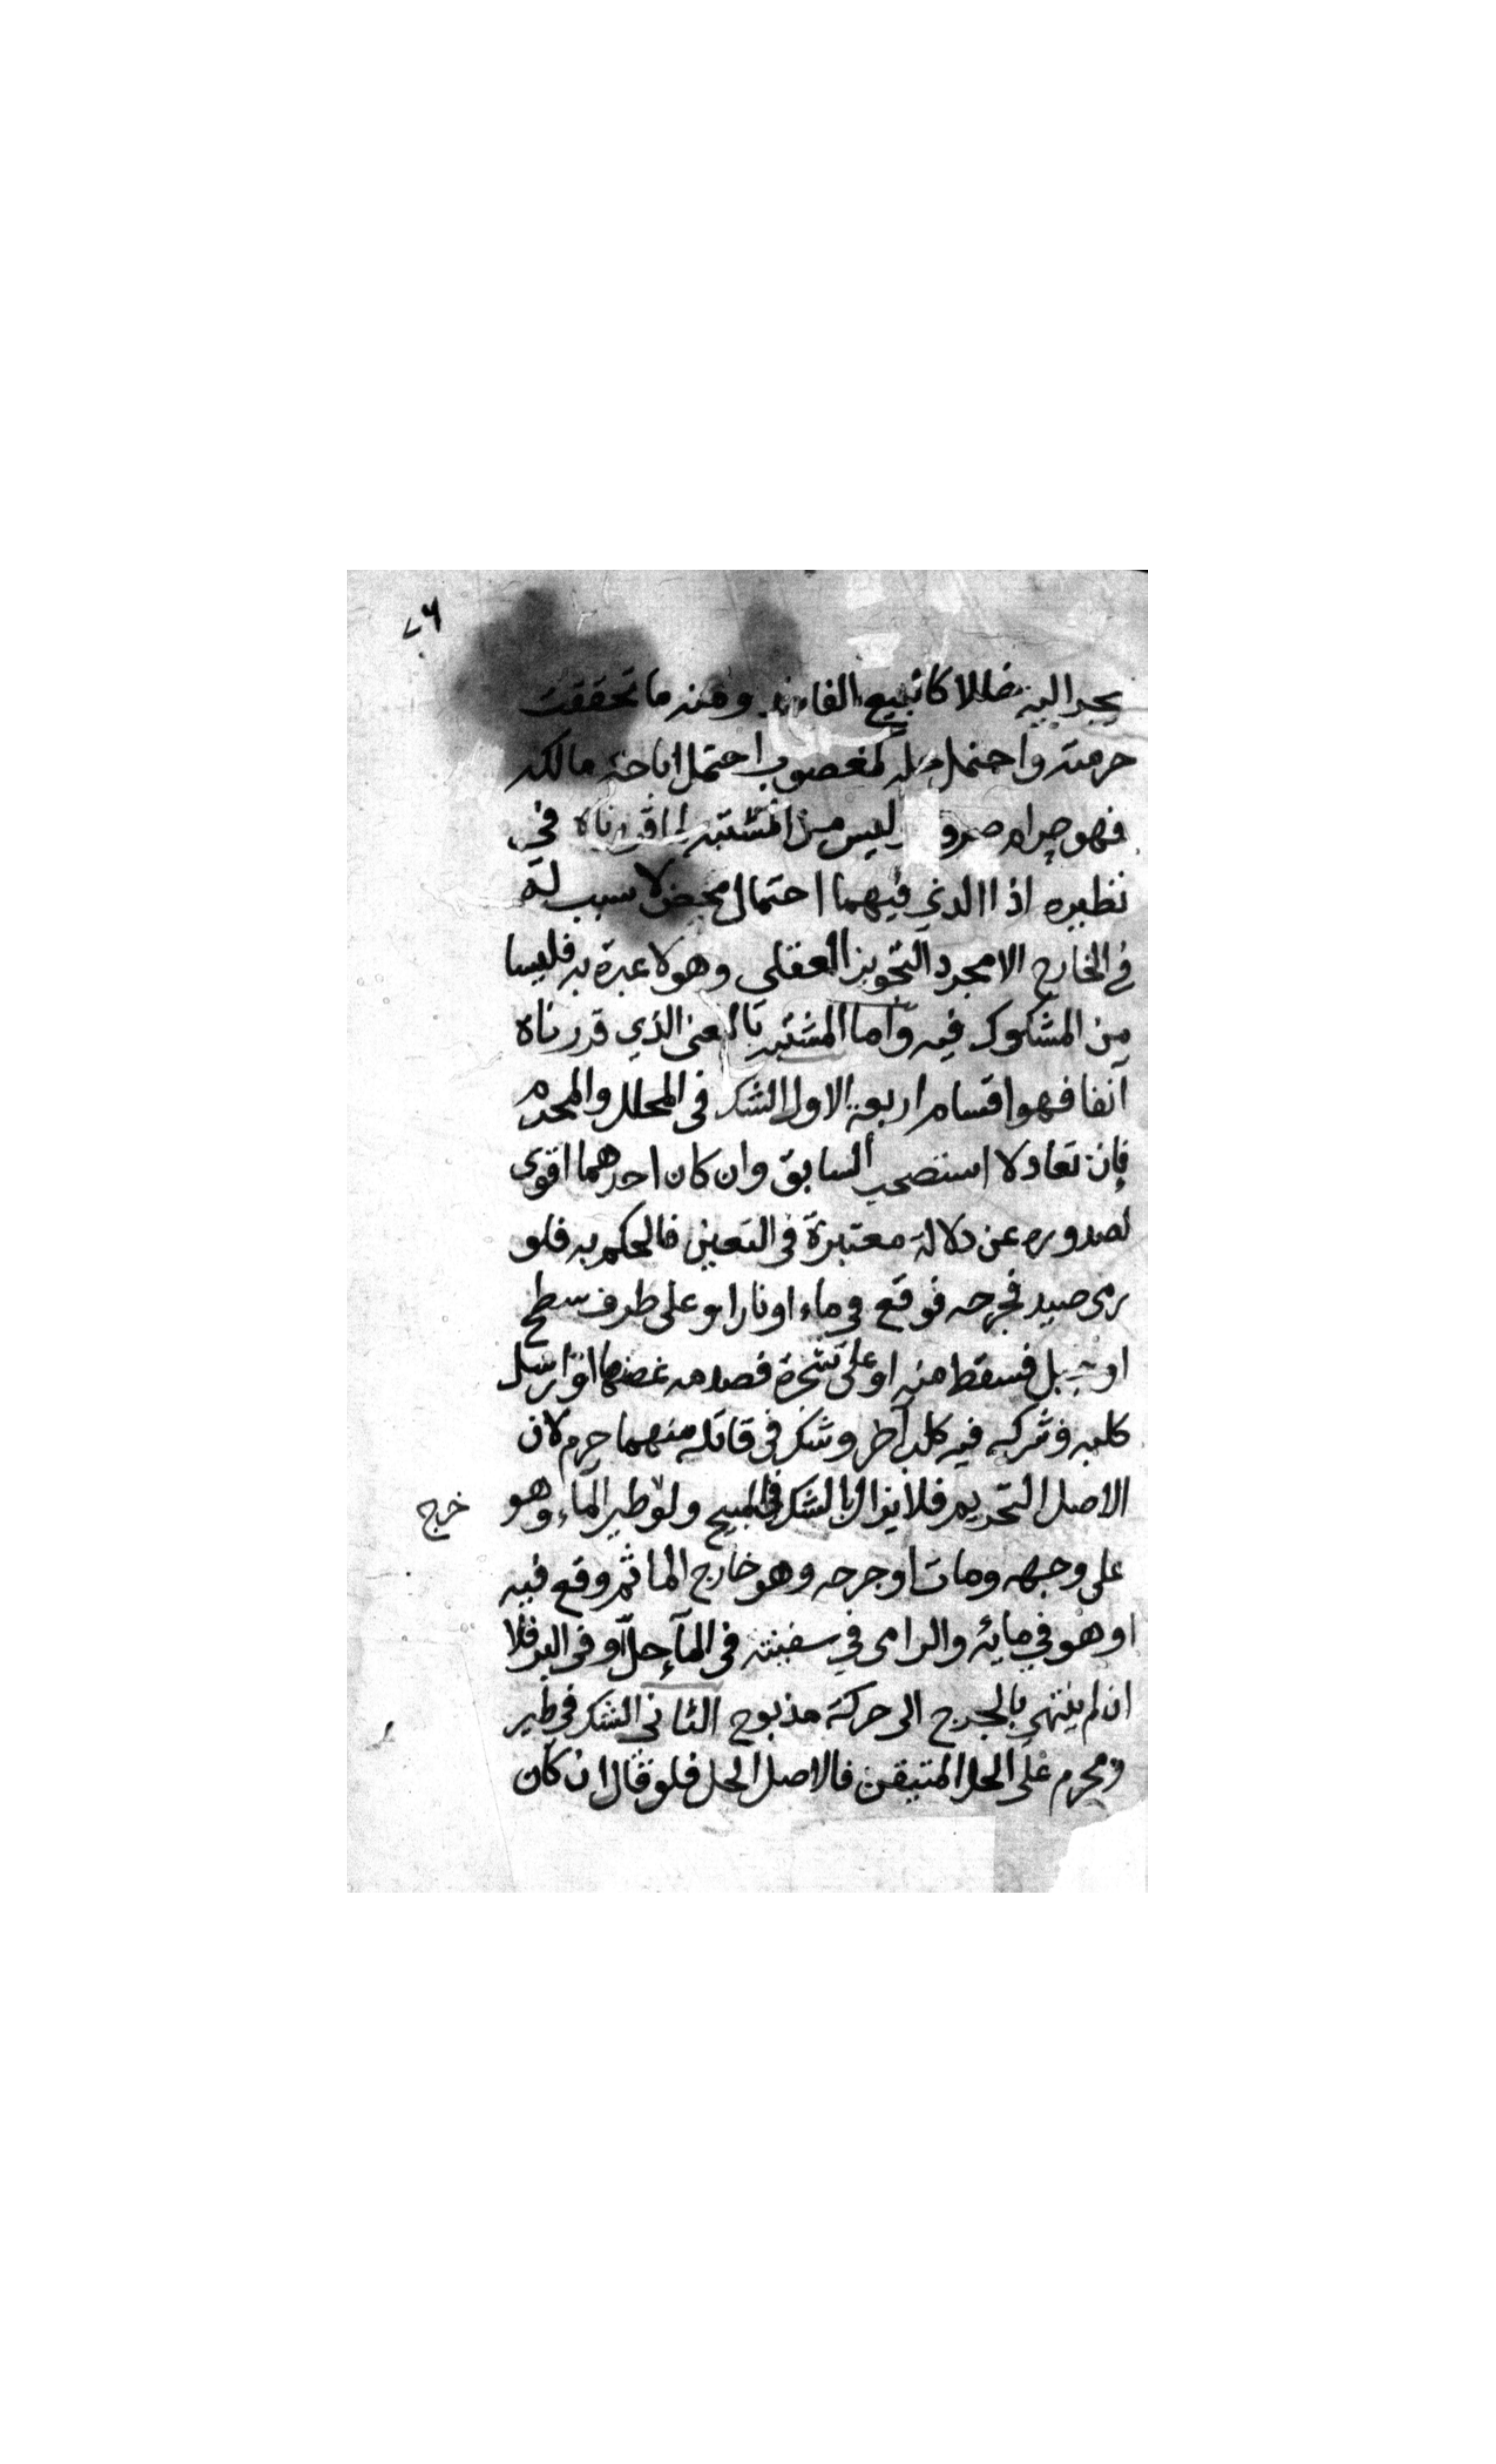 يجد اليه ضالا كانبيع ومنه ما تحققت
حرمته واحتمل حله كمغصوب احتمل اباحة مالكه
فهو حرام ليس من المشتبه لما قررناه في
نظيره اذ الذي فيهما احتمال محض لا سبب له
في الخارج الا مجرد التجويز العقلى وهو لا عبرة به فليسا
من المشكوك فيه واما المشتبه بالمعنى الذي قررناه
آنفا فهو اقسام اربعة الاول الشك فى المحلل والمحرم
فإن تعادلا استصحب السابق وان كان احدهما اقوى
لصدوره عن دلالة معتبرة فى التعين فالحكم به فلو
رمى صيد فجرحه فوقع في ماء او نار او على طرف سطح
او جبل فسقط منه او على شجرة فصدمه غصنها او ارسل
كلبه وشركه فيه كلب آخر وشك فى قاتله منهما حرم لان
الاصل التحريم فلا يزال بالشك فى المبيح ولو طير الماء وهو
خرج
على وجهه ومات او جرحه وهو خارج الما ثم وقع فيه
او هو في مايه والرامى في سفينة فى المآء حل او فى البر فلا
ان لم ينتهي بالجرح الى حركة مذبوح الثانى الشك في طير
ومحرم على الحل المتيقن فالاصل الحل فلو قال ان كان